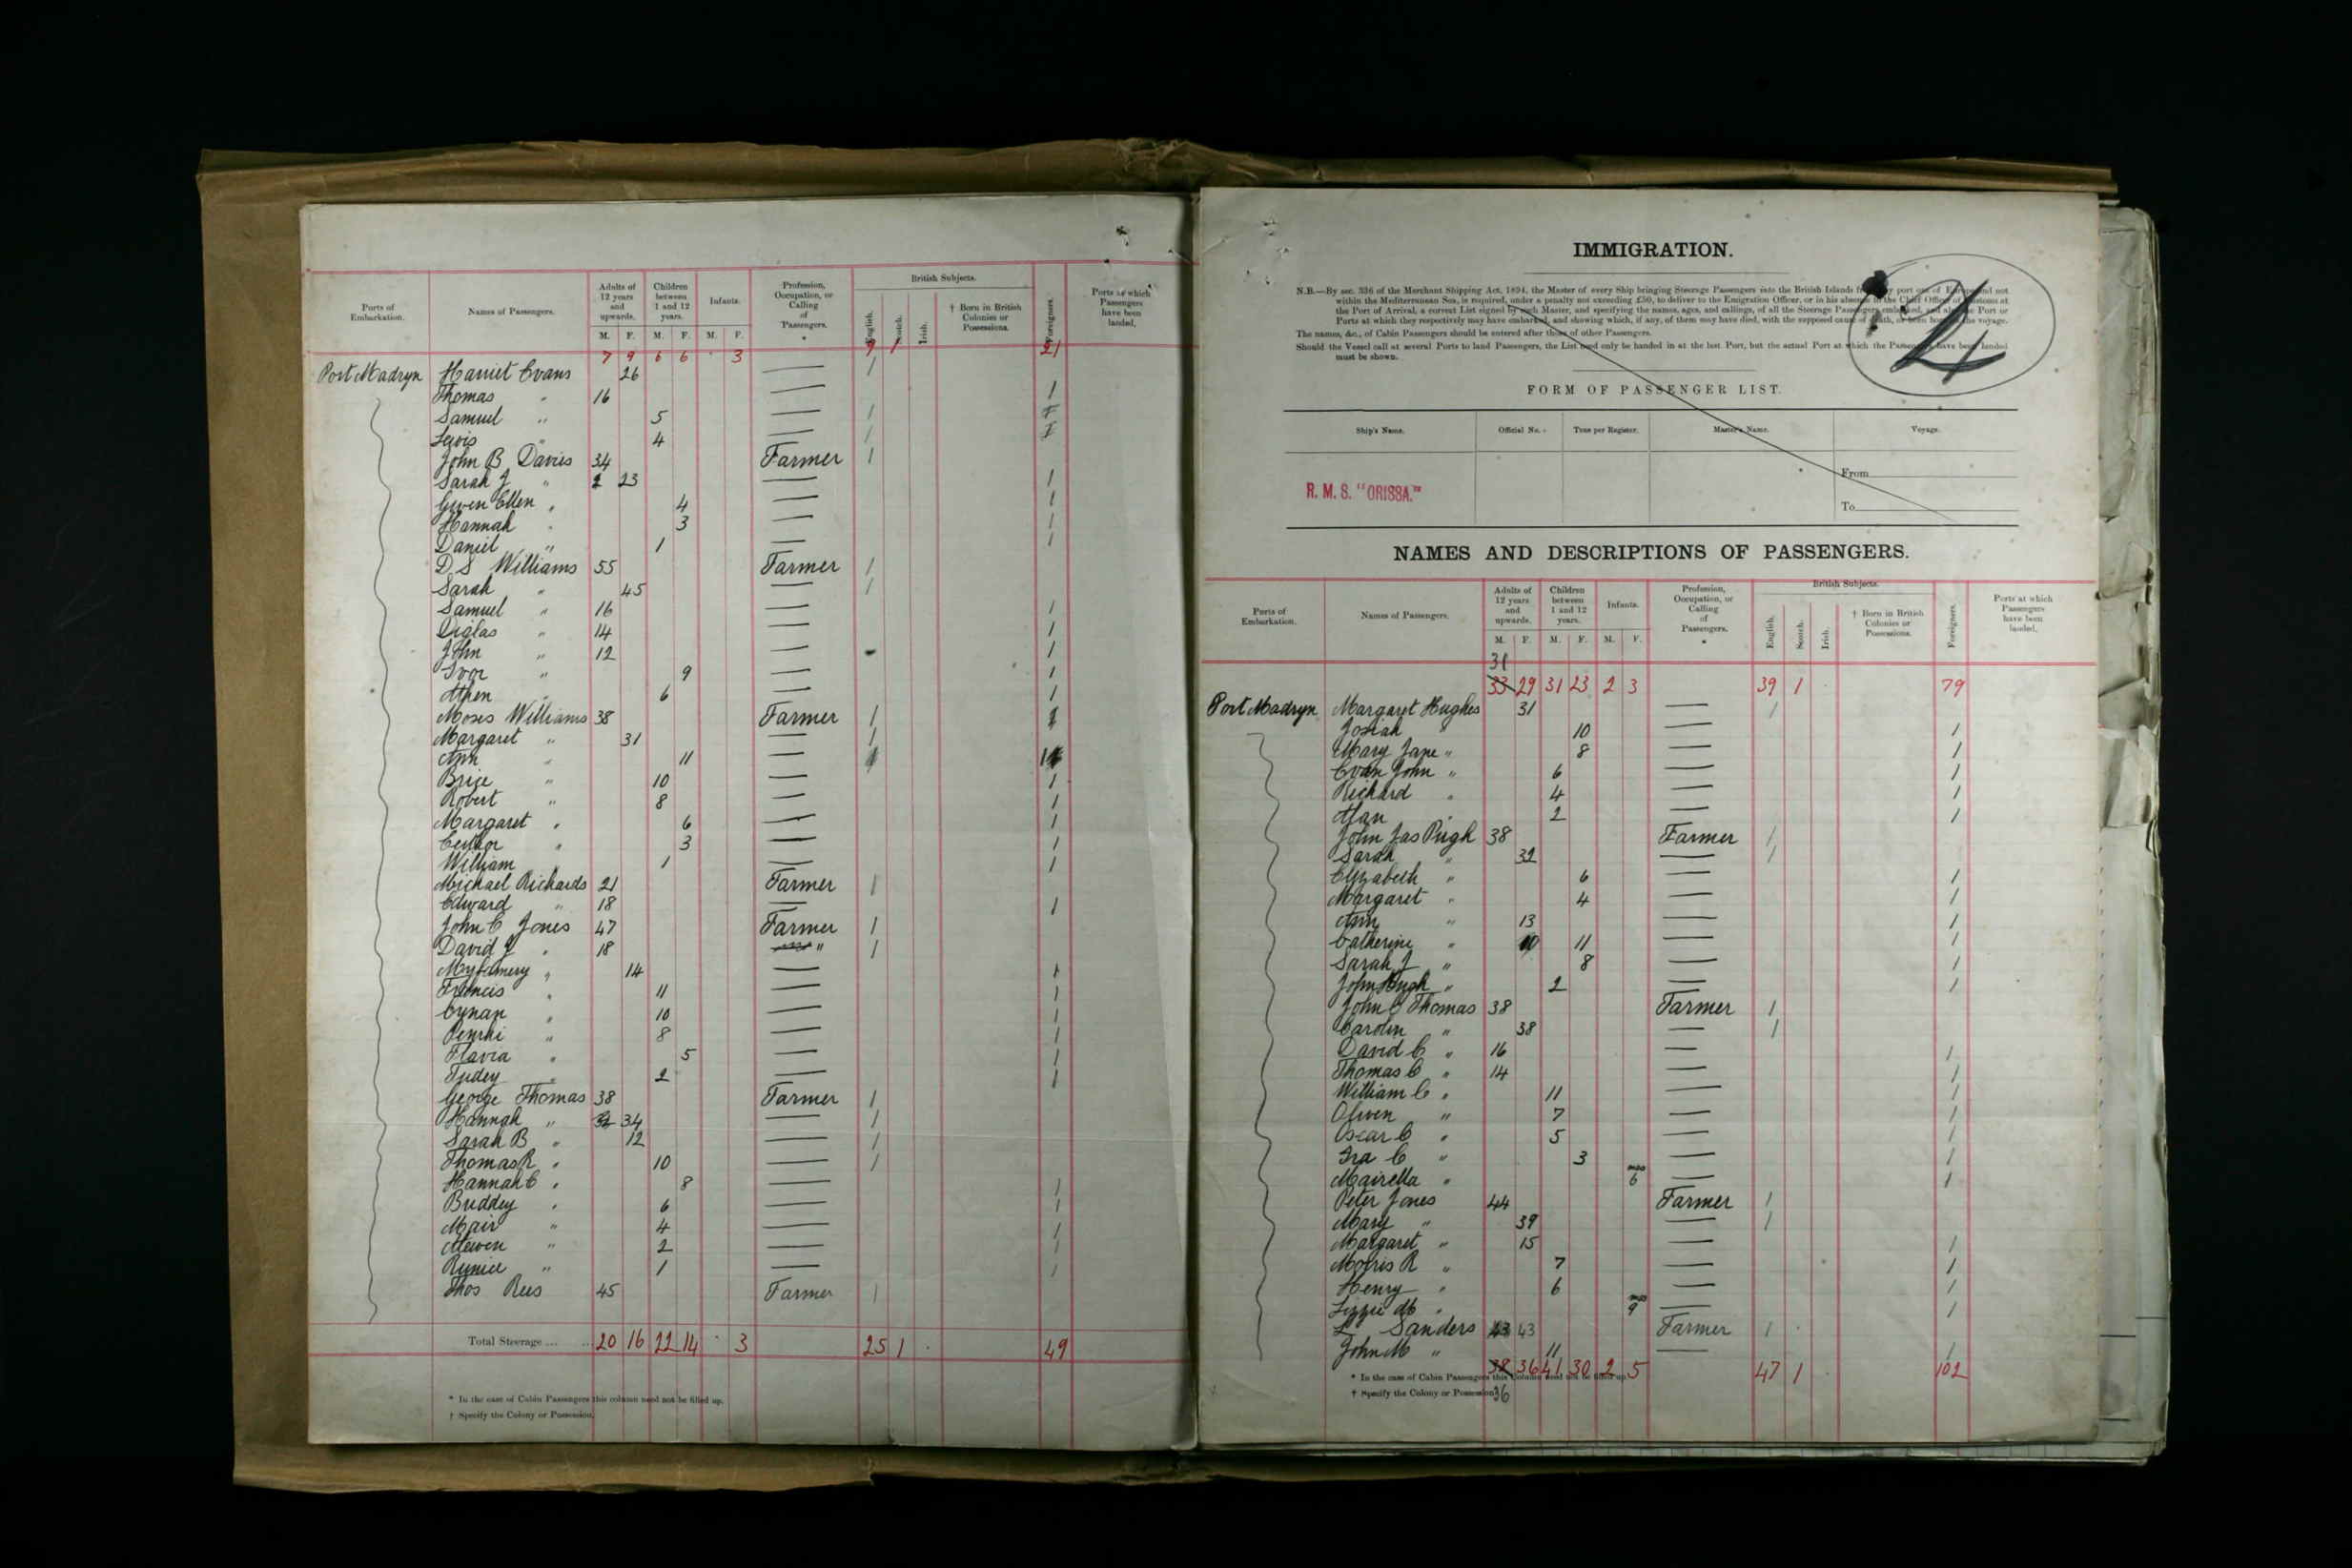 Ports of Embarkation. Names of Passengers. Adults of 12 years and upwards. Children between 1 and 12 years. Infants. Profession, Occupation, or Calling of Passengers. * British Subjects. English. Scotch. Irish. † Born in British Colonies or Possessions. Foreigners. Ports at which Passengers have been landed.
M. F. M. F. M. F.
7 9 6 6 · 3 9 1 21
Port Madryn Harriet Evans 26 — 1
Thomas " 16 — 1
Samuel " 5 — 1
Lewis " 4 — 1
John B Davies 34 Farmer 1
Sarah J " 23 — 1
Gwen Ellen " 4 — 1
Hannah " 3 — 1
Daniel " 1 — 1
D. S Williams 55 Farmer 1
Sarah " 45 — 1
Samuel " 16 — 1
" 14 — 1
John " 12 — 1
Ivor " 9 — 1
Athen " 6 — 1
Moses Williams 38 Farmer 1
Margaret " 31 — 1
Ann " 11 —
Brige " 10 — 1
Robert " 8 — 1
Margaret " 6 — 1
" 3 — 1
William " 1 — 1
Michael Richards 21 Farmer 1
Edward " 18 — 1
John C Jones 47 Farmer 1
David J " 18 " 1
" 14 — 1
Francis " 11 — 1
Cynan " 10 — 1
" 8 — 1
Flavia " 5 — 1
Tudey " 2 — 1
George Thomas 38 Farmer 1
Hannah " 34 — 1
Sarah B " 12 — 1
Thomas R " 10 — 1
Hannah C " 8 — 1
Buddey " 6 — 1
Mair " 4 — 1
" 2 — 1
" 1 — 1
Thos Rees 45 Farmer 1
Total Steerage ... ... 20 16 22 14 · 3 25 1 · 49
* In the case of Cabin Passengers this column need not be filled up.
† Specify the Colony or Possession.
IMMIGRATION.
4
N.B.—By sec. 336 of the Merchant Shipping Act, 1894, the Master of every Ship bringing Steerage Passengers into the British Islands from any port out of Europe and not
within the Mediterranean Sea, is required, under a penalty not exceeding £50, to deliver to the Emigration Officer, or in his absence to the Chief Officer of Customs at
the Port of Arrival, a correct List signed by such Master, and specifying the names, ages, and callings, of all the Steerage Passengers embarked, and also the Port or
Ports at which they respectively may have embarked, and showing which, if any, of them may have died, with the supposed cause of death, or been born on the voyage.
The names, &c., of Cabin Passengers should be entered after those of other Passengers.
Should the Vessel call at several Ports to land Passengers, the List need only be handed in at the last Port, but the actual Port at which the Passengers have been landed
must be shown.
FORM OF PASSENGER LIST.
Ship's Name. Official No. Tons per Register. Master's Name. Voyage.
R. M. S. "ORISSA." From
To
NAMES AND DESCRIPTIONS OF PASSENGERS.
Ports of Embarkation. Names of Passengers. Adults of 12 years and upwards. Children between 1 and 12 years. Infants. Profession, Occupation, or Calling of Passengers. * British Subjects. English. Scotch. Irish. † Born in British Colonies or Possessions. Foreigners. Ports at which Passengers have been landed.
M. F. M. F. M. F.
31
33 29 31 23 2 3 39 1 · 79
Port Madryn Margaret Hughes 31 — 1
Josiah " 10 — 1
Mary Jane " 8 — 1
Evan John " 6 — 1
Richard " 4 — 1
Alan " 2 — 1
John Jas Pugh 38 Farmer 1
Sarah " 32 — 1
Elizabeth " 6 — 1
Margaret " 4 — 1
Ann " 13 — 1
Catherine " 11 — 1
Sarah J " 8 — 1
John Hugh " 2 — 1
John C Thomas 38 Farmer 1
Carolin " 38 — 1
David C " 16 — 1
Thomas C " 14 — 1
William C " 11 — 1
Olwen " 7 — 1
Oscar C " 5 — 1
Ira C " 3 — 1
Mairella " mos 6 — 1
Peter Jones 44 Farmer 1
Mary " 39 — 1
Margaret " 15 — 1
Morris R " 7 — 1
Henry " 6 — 1
Lizzie M " mos 9 — 1
Sanders 43 Farmer 1
John M " 11 — 1
38 36 41 30 2 5 47 1 102
* In the case of Cabin Passengers this column need not be filled up.
† Specify the Colony or Possession.
36